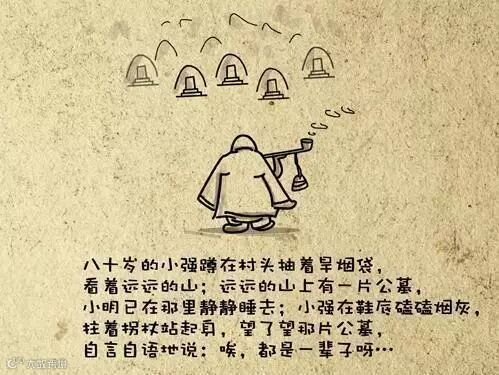 八十岁的小强蹲在村头抽着旱烟袋，
看着远远的山；远远的山上有一片公墓，
小明已在那里静静睡去；小强在鞋底磕磕烟灰，
拄着拐杖站起身，望了望那片公墓，
自言自语地说：唉，都是一辈子呀…